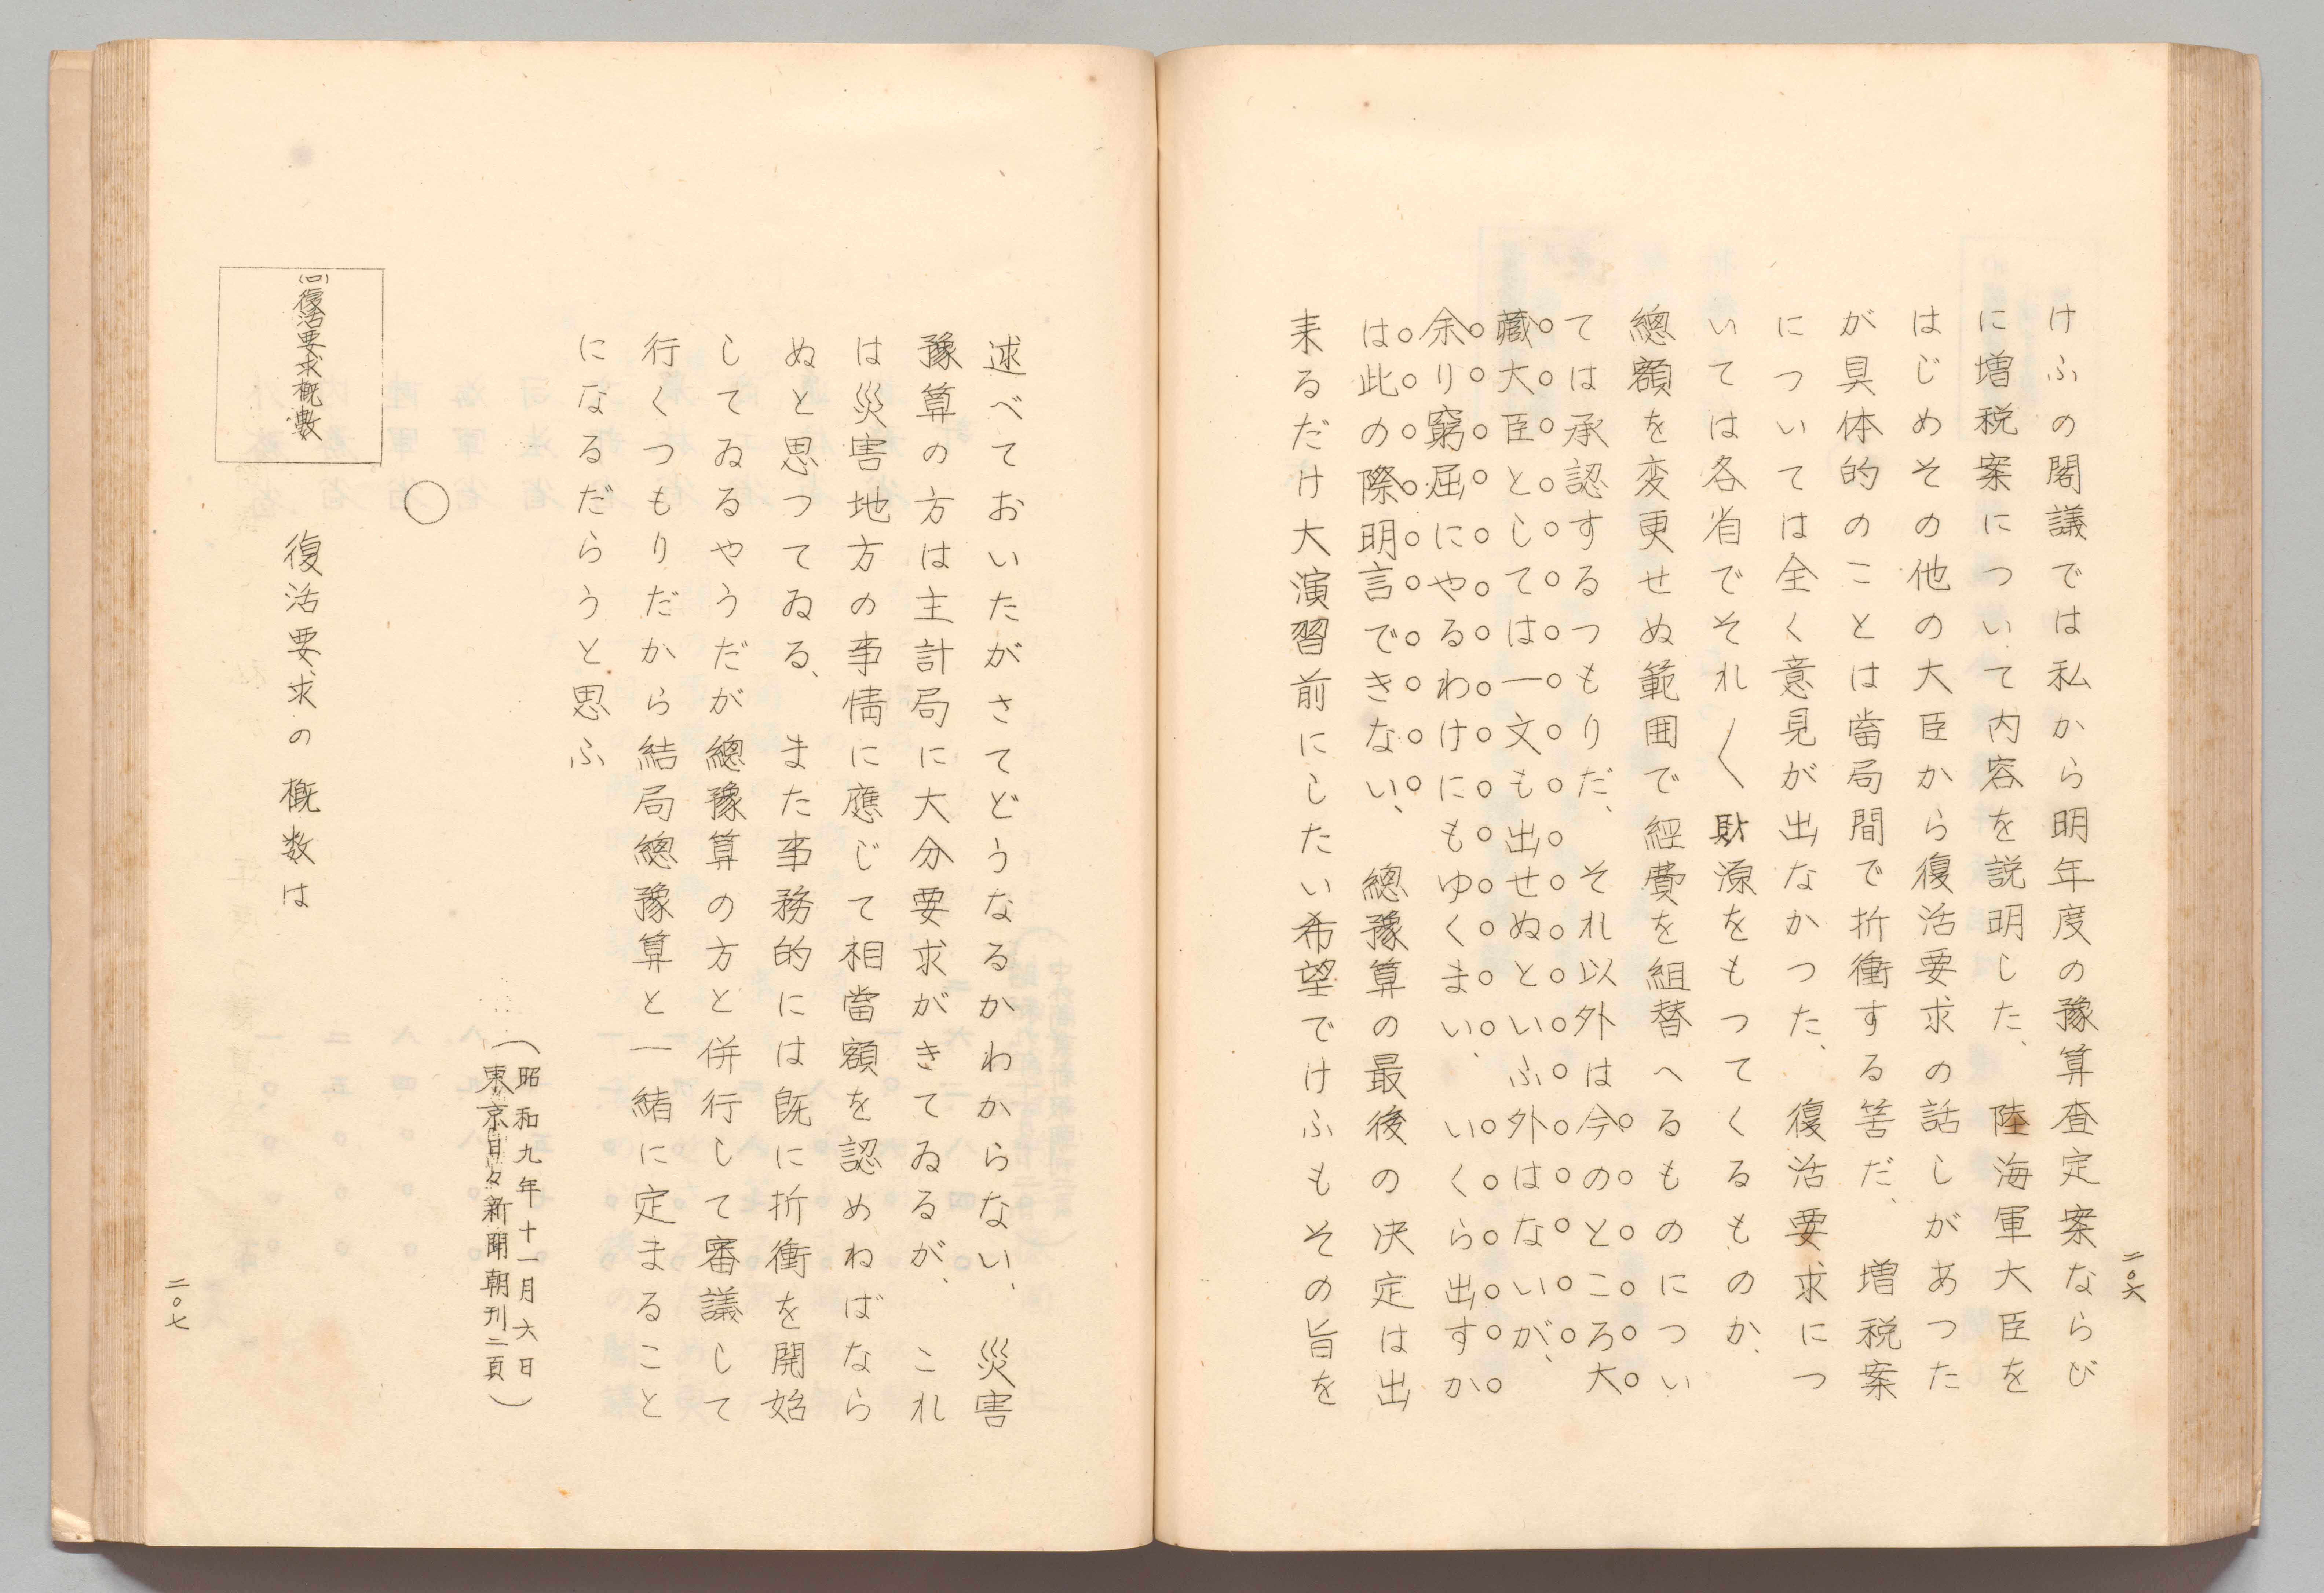 二〇六
けふの閣議では私から明年度の豫算査定案ならび
に増税案について内容を説明した、陸海軍大臣を
はじめその他の大臣から復活要求の話しがあつた
が具体的のことは當局間で折衝する筈だ、増税案
については全く意見が出なかつた、復活要求につ
いては各省でそれ〱財源をもつてくるものか、
總額を変更せぬ範囲で經費を組替へるものについ
ては承認するつもりだ、それ以外は今のところ大
藏大臣としては一文も出せぬといふ外はないが、
余り窮屈にやるわけにもゆくまい、いくら出すか
は此の際明言できない、總豫算の最後の決定は出
来るだけ大演習前にしたい希望でけふもその旨を
述べておいたがさてどうなるかわからない、災害
豫算の方は主計局に大分要求がきてゐるが、これ
は災害地方の事情に應じて相當額を認めねばなら
ぬと思つてゐる、また事務的には既に折衝を開始
してゐるやうだが總豫算の方と併行して審議して
行くつもりだから結局總豫算と一緒に定まること
になるだらうと思ふ
（昭和九年十一月六日
東京日々新聞朝刊二頁）
○
(ロ)復活要求概数
復活要求の概数は
二〇七